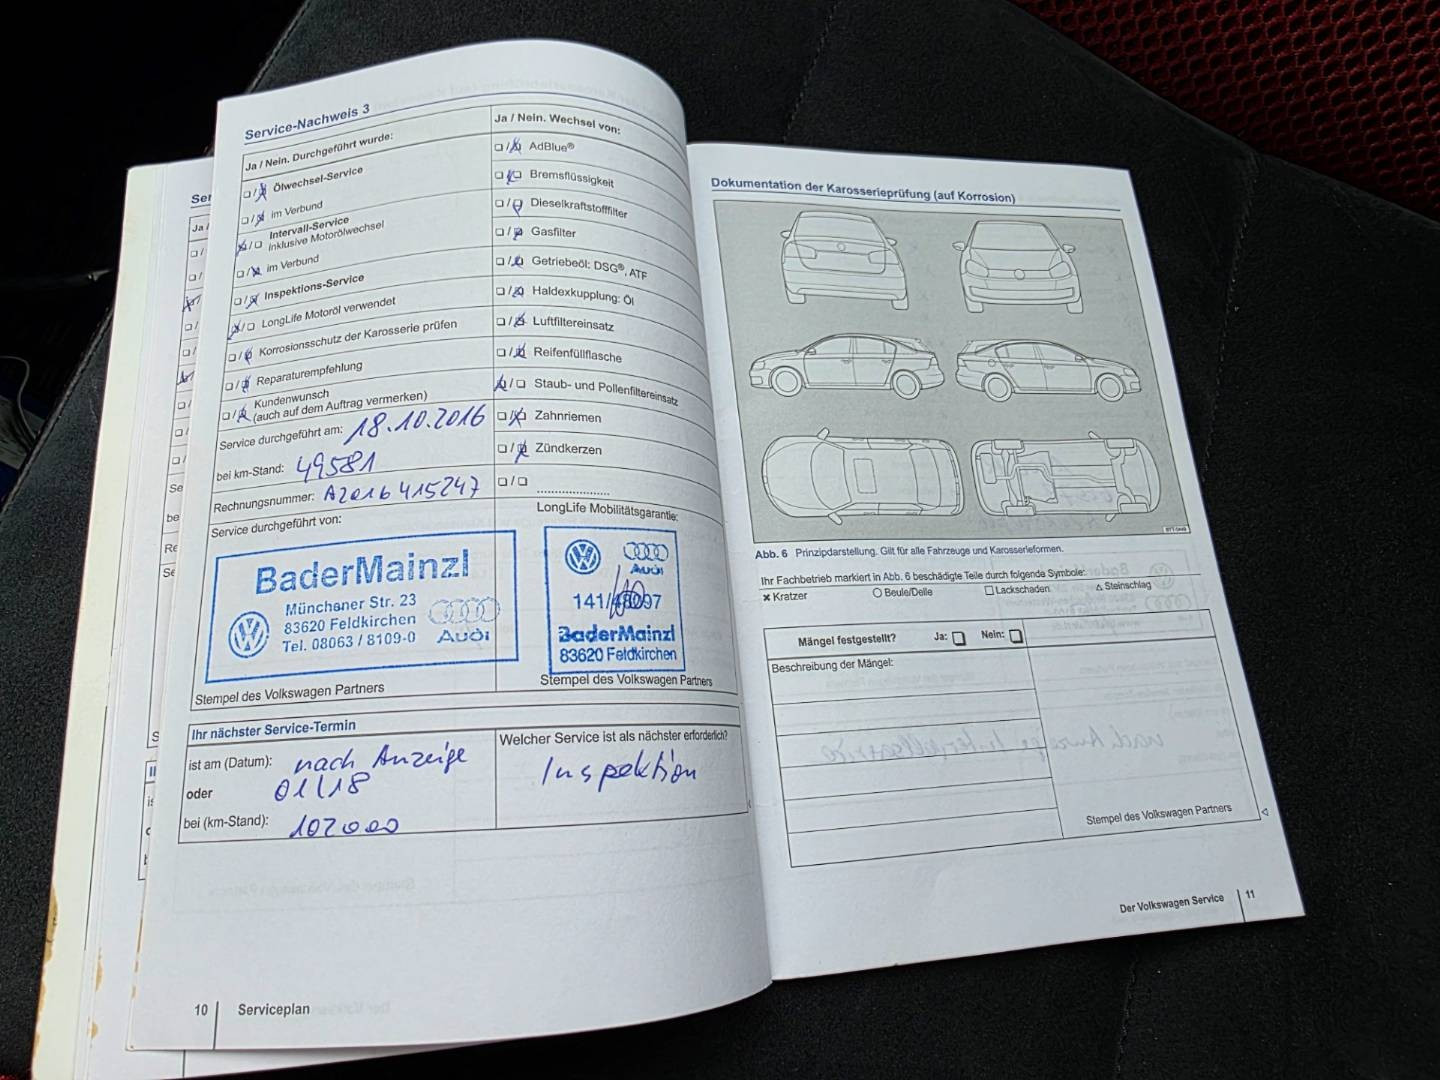 Service-Nachweis 3
Ja / Nein. Durchgeführt wurde:
Ölwechsel-Service
im Verbund
Intervall-Service
Inklusive Motorölwechsel
im Verbund
Inspektions-Service
LongLife Motoröl verwendet
Korrosionsschutz der Karosserie prüfen
Reparaturempfehlung
Kundenwunsch
(auch auf dem Auftrag vermerken)
Service durchgeführt am: 18.10.2016
bei km-Stand: 49581
Rechnungsnummer: A2016415247
Service durchgeführt von:
BaderMainzl
Münchaner Str. 23
83620 Feldkirchen
Tel. 08063 / 8109-0
Audi
Stempel des Volkswagen Partners
Ja / Nein. Wechsel von:
AdBlue®
Bremsflüssigkeit
Dieselkraftstofffilter
Gasfilter
Getriebeöl: DSG®, ATF
Haldexkupplung: Öl
Luftfiltereinsatz
Reifenfüllflasche
Staub- und Pollenfiltereinsatz
Zahnriemen
Zündkerzen
LongLife Mobilitätsgarantie:
Audi
BaderMainzl
83620 Feldkirchen
Stempel des Volkswagen Partners
Ihr nächster Service-Termin
ist am (Datum): nach Anzeige
oder 01/18
bei (km-Stand): 102000
Welcher Service ist als nächster erforderlich?
Inspektion
10 Serviceplan
Dokumentation der Karosserieprüfung (auf Korrosion)
Abb. 6 Prinzipdarstellung. Gilt für alle Fahrzeuge und Karosserieformen.
Ihr Fachbetrieb markiert in Abb. 6 beschädigte Teile durch folgende Symbole:
Kratzer Beule/Delle Lackschaden Steinschlag
Mängel festgestellt? Ja: Nein:
Beschreibung der Mängel:
Stempel des Volkswagen Partners
Der Volkswagen Service 11